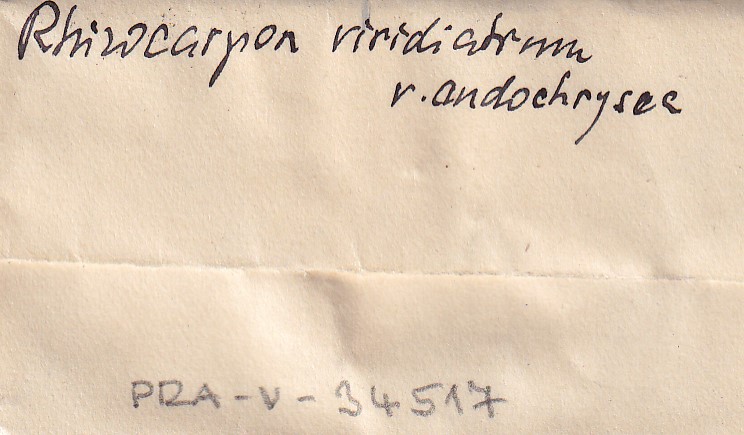 Rhizocarpon viridiatrum
v. endochrysea
PRA-V-34517